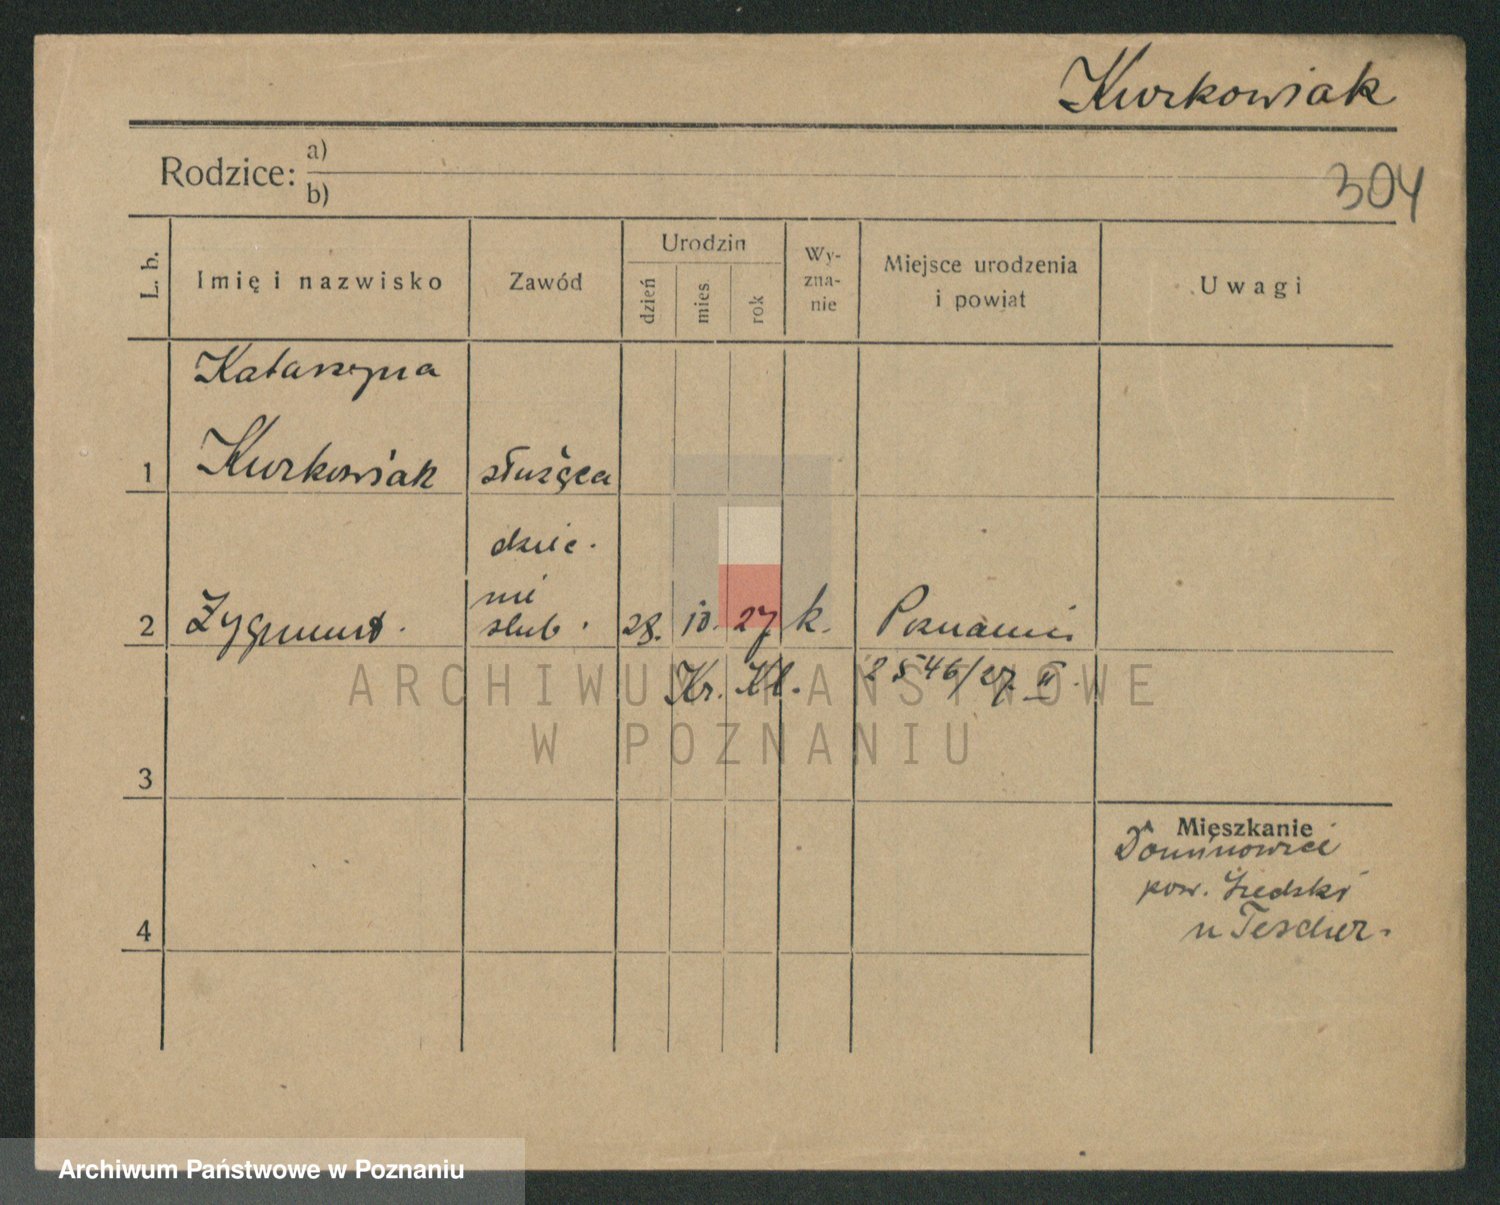 Kurkowiak
Rodzice: a)
b)
304
L. b.
Imię i nazwisko
Zawód
Urodzin
dzień
mies
rok
Wy-
zna-
nie
Miejsce urodzenia
i powiat
Uwagi
Katarzyna
1 Kurkowiak służąca
dzie.
nie
2 Zygmunt. ślub. 28. 10. 27 k. Poznaniu
Kr. Kl. 2546/27 II.
3
Mieszkanie
pow.
u Tescher.
4
ARCHIWUM PAŃSTWOWE
W POZNANIU
Archiwum Państwowe w Poznaniu